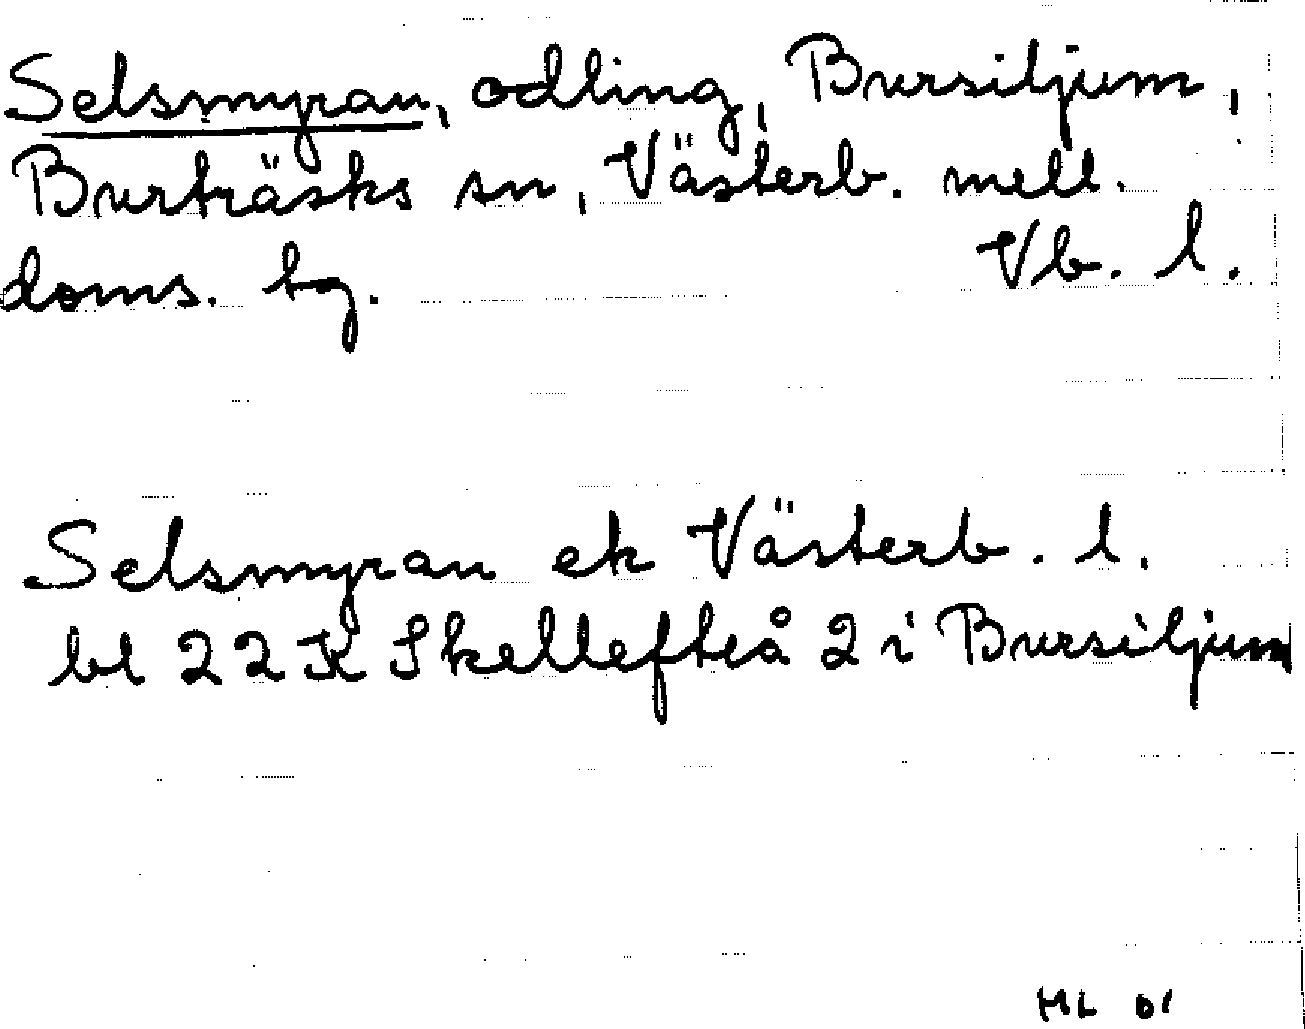 Selsmyran, odling, Bursiljum,
Burträsks sn, Västerb. mell.
doms. bg. Vb. l.
Selsmyran ek Västerb. l.
bl 22K Skellefteå 2 i Bursiljum
ML 01